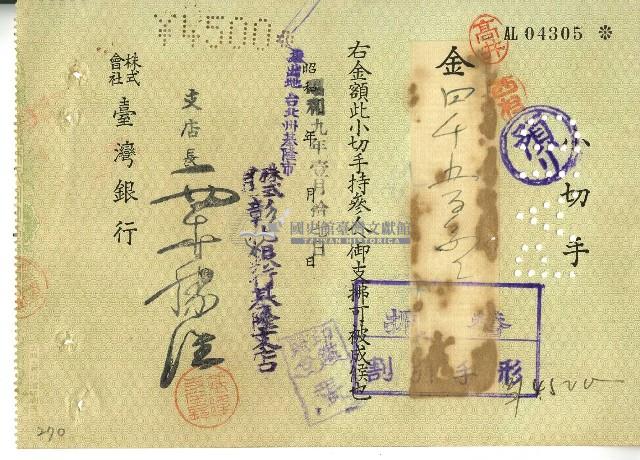 AL 04305 ※
小切手
高井
須川
金四千五百
¥4500
右金額此小切手持參人御支拂可被成候也
昭和九年壹月
振出地 台北州基隆市
株式會社彰化銀行基隆支店
支店長
株式會社臺灣銀行
割引手形
印鑑
國史館臺灣文獻館
TAIWAN HISTORICA
4500
270